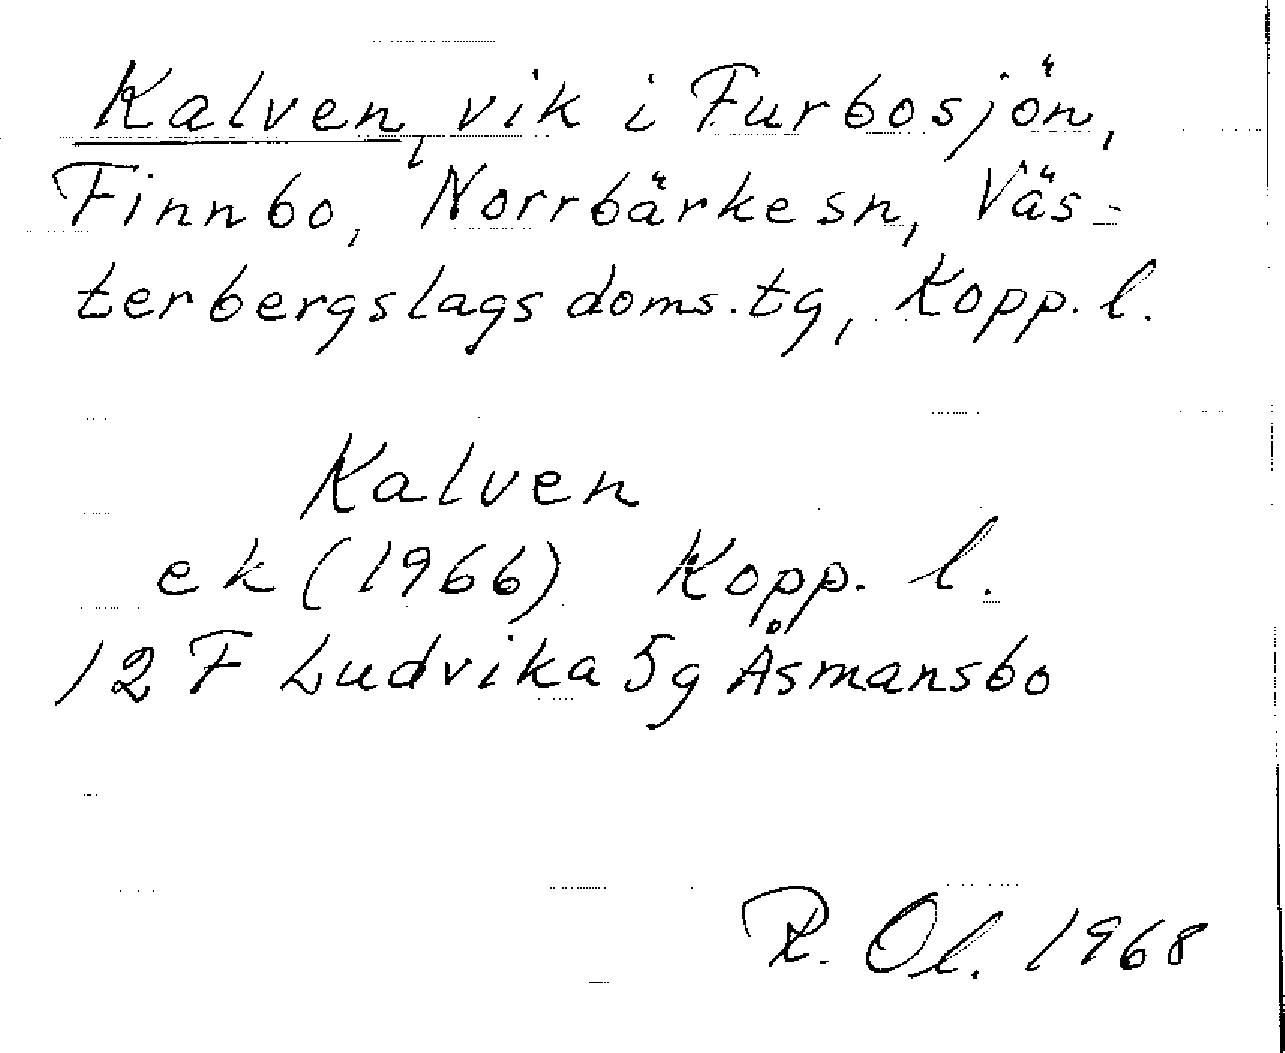 Kalven, vik i Furbosjön,
Finnbo, Norrbärke sn, Väs-
terbergslags doms. tg, Kopp. l.
Kalven
ek (1966) Kopp. l.
12 F Ludvika 5g Åsmansbo
R. Ol. 1968